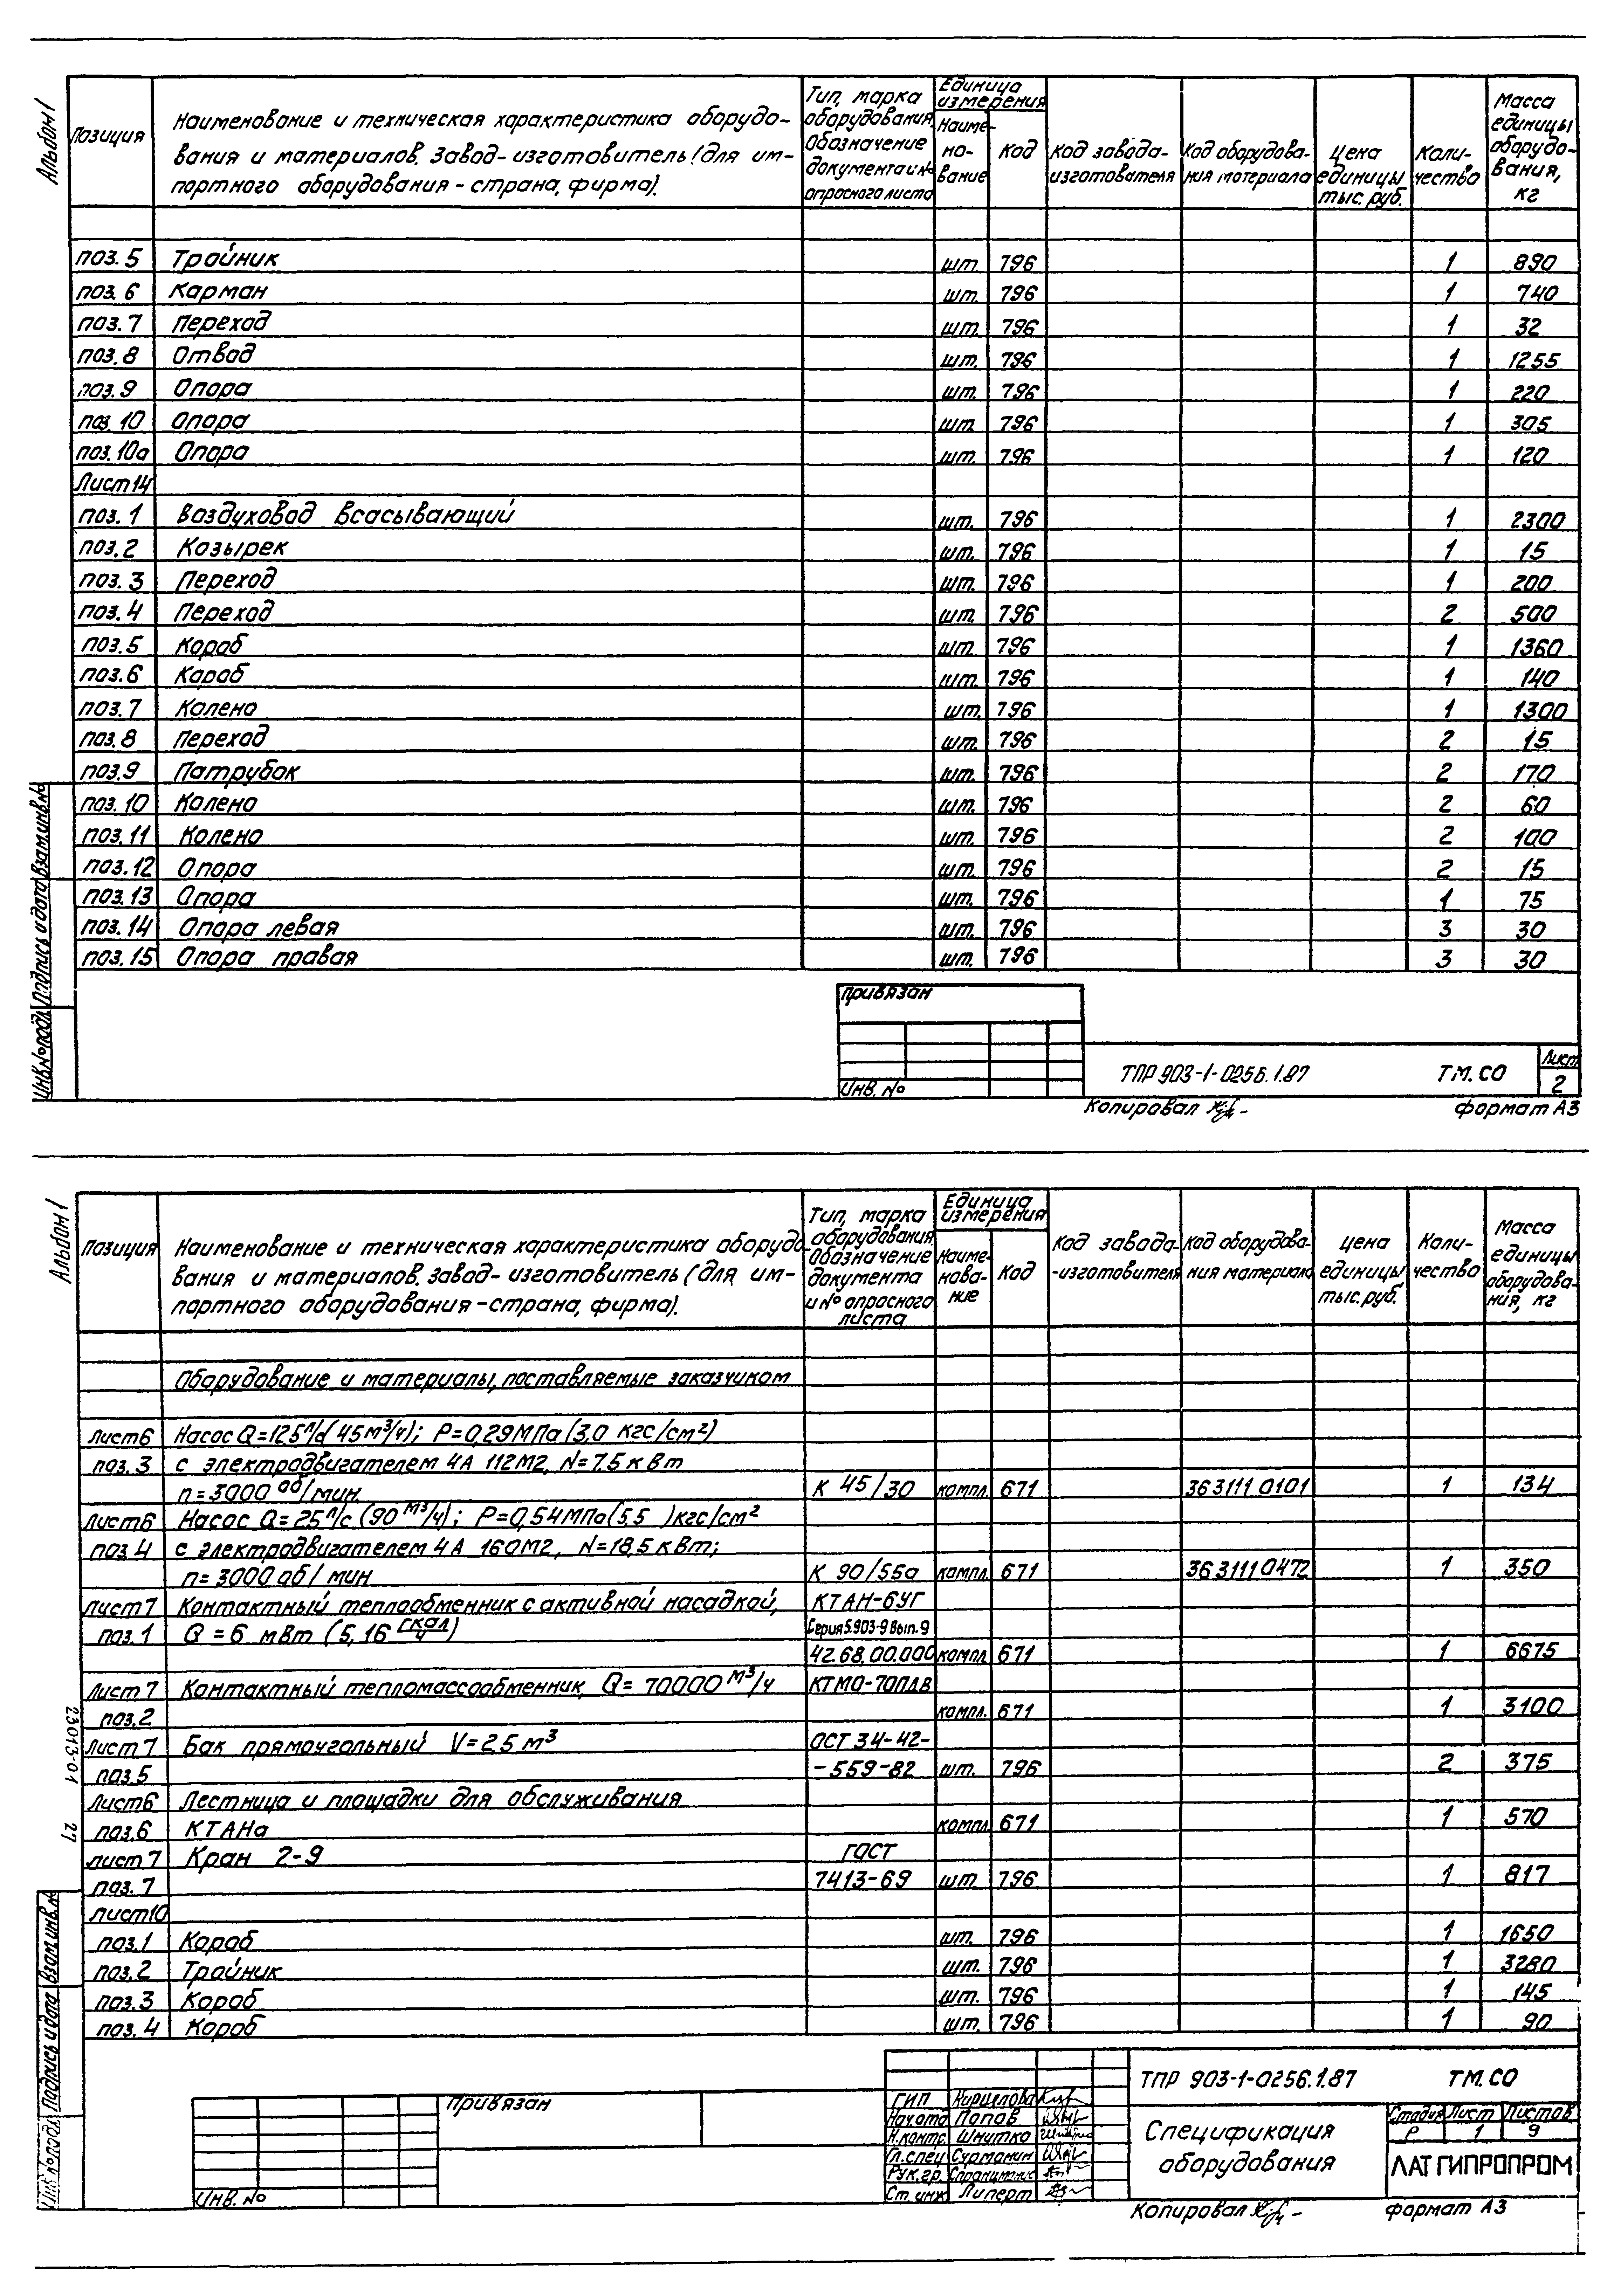 Альбом 1
Позиция
Наименование и техническая характеристика оборудо-
вания и материалов. Завод-изготовитель (для им-
портного оборудования - страна, фирма).
Тип, марка
оборудования.
Обозначение
документа и №
опросного листа
Единица
измерения
Наиме-
но-
вание
Код
Код завода-
изготовителя
Код оборудова-
ния материала
Цена
единицы
тыс. руб.
Коли-
чество
Масса
единицы
оборудо-
вания,
кг
поз. 5 Тройник шт. 796 1 890
поз. 6 Карман шт. 796 1 740
поз. 7 Переход шт. 796 1 32
поз. 8 Отвод шт. 796 1 1255
поз. 9 Опора шт. 796 1 220
поз. 10 Опора шт. 796 1 305
поз. 10а Опора шт. 796 1 120
Лист 14
поз. 1 Воздуховод всасывающий шт. 796 1 2300
поз. 2 Козырек шт. 796 1 15
поз. 3 Переход шт. 796 1 200
поз. 4 Переход шт. 796 2 500
поз. 5 Короб шт. 796 1 1360
поз. 6 Короб шт. 796 1 140
поз. 7 Колено шт. 796 1 1300
поз. 8 Переход шт. 796 2 15
поз. 9 Патрубок шт. 796 2 170
поз. 10 Колено шт. 796 2 60
поз. 11 Колено шт. 796 2 100
поз. 12 Опора шт. 796 2 15
поз. 13 Опора шт. 796 1 75
поз. 14 Опора левая шт. 796 3 30
поз. 15 Опора правая шт. 796 3 30
Инв. № подл. Подпись и дата Взам. инв. №
Привязан
Инв. №
ТПР 903-1-0256.1.87 ТМ.СО
Лист
2
Копировал
формат А3
Альбом 1
Позиция
Наименование и техническая характеристика оборудо-
вания и материалов. Завод-изготовитель (для им-
портного оборудования - страна, фирма).
Тип, марка
оборудования.
Обозначение
документа
и № опросного
листа
Единица
измерения
Наиме-
нова-
ние
Код
Код завода-
-изготовителя
Код оборудова-
ния материала
Цена
единицы
тыс. руб.
Коли-
чество
Масса
единицы
оборудова-
ния, кг
Оборудование и материалы, поставляемые заказчиком
Лист 6 Насос Q=12,5 л/с (45 м³/ч); Р=0,29 МПа (3,0 кгс/см²)
поз. 3 с электродвигателем 4А 112М2, N=7,5 кВт
n=3000 об/мин. К 45/30 компл. 671 363111 0101 1 134
Лист 6 Насос Q=25 л/с (90 м³/ч); Р=0,54 МПа (5,5 ) кгс/см²
поз 4 с электродвигателем 4А 160М2, N=18,5 кВт;
n=3000 об/мин К 90/55а компл. 671 363111 0472 1 350
Лист 7 Контактный теплообменник с активной насадкой, КТАН-6УГ
поз. 1 Q=6 мВт (5,16 Гкал/ч) Серия 5.903-9 Вып. 9
42.68.00.000 компл. 671 1 6675
Лист 7 Контактный тепломассообменник, Q= 70000 м³/ч КТМО-70ПДВ
поз. 2 компл. 671 1 3100
Лист 7 Бак прямоугольный V=2,5 м³ ОСТ 34-42-
поз. 5 -559-82 шт. 796 2 375
Лист 6 Лестница и площадки для обслуживания
поз. 6 КТАНа компл. 671 1 570
лист 7 Кран 2-9 ГОСТ
поз. 7 7413-69 шт. 796 1 817
лист 10
поз. 1 Короб шт. 796 1 1650
поз. 2 Тройник шт. 796 1 3280
поз. 3 Короб шт. 796 1 145
поз. 4 Короб шт. 796 1 90
23013-01 27
Подпись и дата Взам. инв. №
Привязан
Инв. №
ГИП
Нач. отд Попов
Н. контр. Шнитко
Гл. спец Сурманин
Рук. гр.
Ст. инж Липерт
ТПР 903-1-0256.1.87 ТМ.СО
Спецификация
оборудования
Стадия Лист Листов
Р 1 9
ЛАТГИПРОПРОМ
Копировал
формат А3